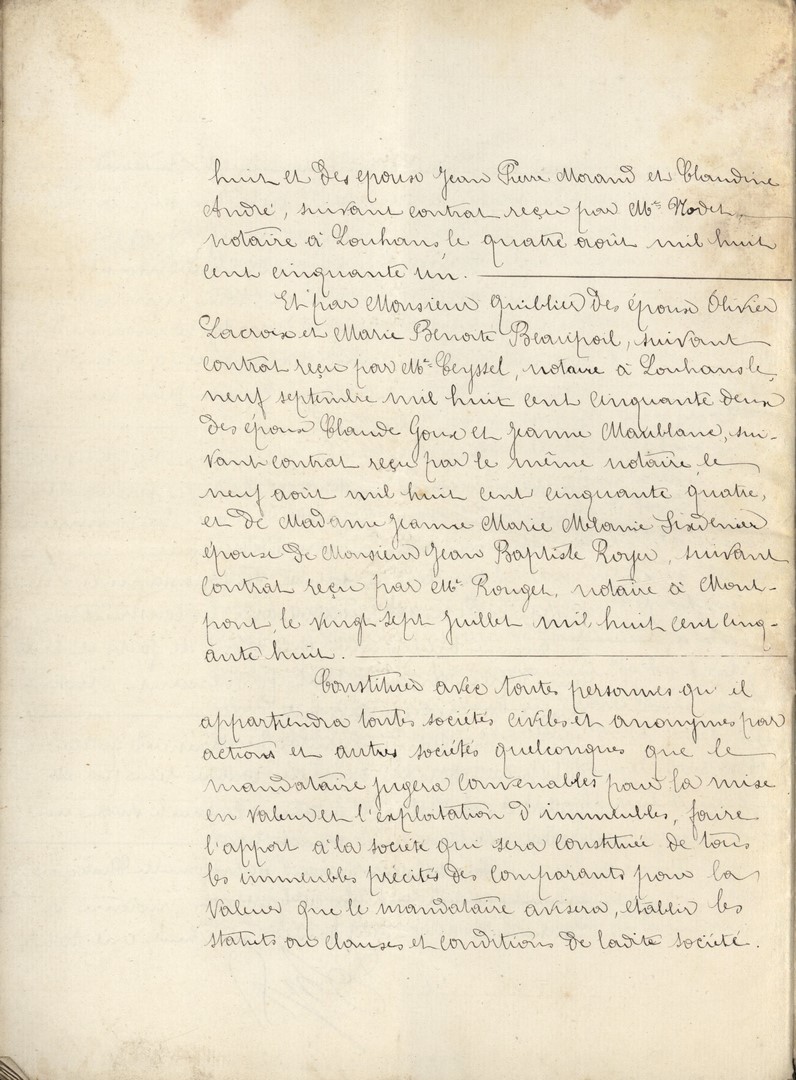 huit et des epoux Jean Pierre Morand et Claudine
André, suivant contrat reçu par Me Nodet,
notaire à Louhans, le quatre août mil huit
cent cinquante un.
Et par Monsieur Guiblier des époux Olivier
Lacroix et Marie Benoite Beaupoil, suivant
contrat reçu par Me Teyssel, notaire à Louhans le
neuf septembre mil huit cent cinquante deux
des époux Claude Goux et Jeanne Maublanc, sui-
vant contrat reçu par le même notaire le
neuf août mil huit cent cinquante quatre,
et de Madame Jeanne Marie Mélanie Sixdenier
épouse de Monsieur Jean Baptiste Royer, suivant
contrat reçu par Me Rouget, notaire à Mont-
pont, le vingt sept Juillet mil huit cent cinq-
ante huit.
Constituer avec toutes personnes qu'il
appartiendra toutes sociétés civiles et anonymes par
actions et autres sociétés quelconques que le
mandataire jugera convenables pour la mise
en valeur et l'exploitation d'immeubles, faire
l'apport à la société qui sera constituée de tous
les immeubles précités des comparants pour la
valeur que le mandataire avisera, établir les
statuts ou clauses et conditions de ladite société.